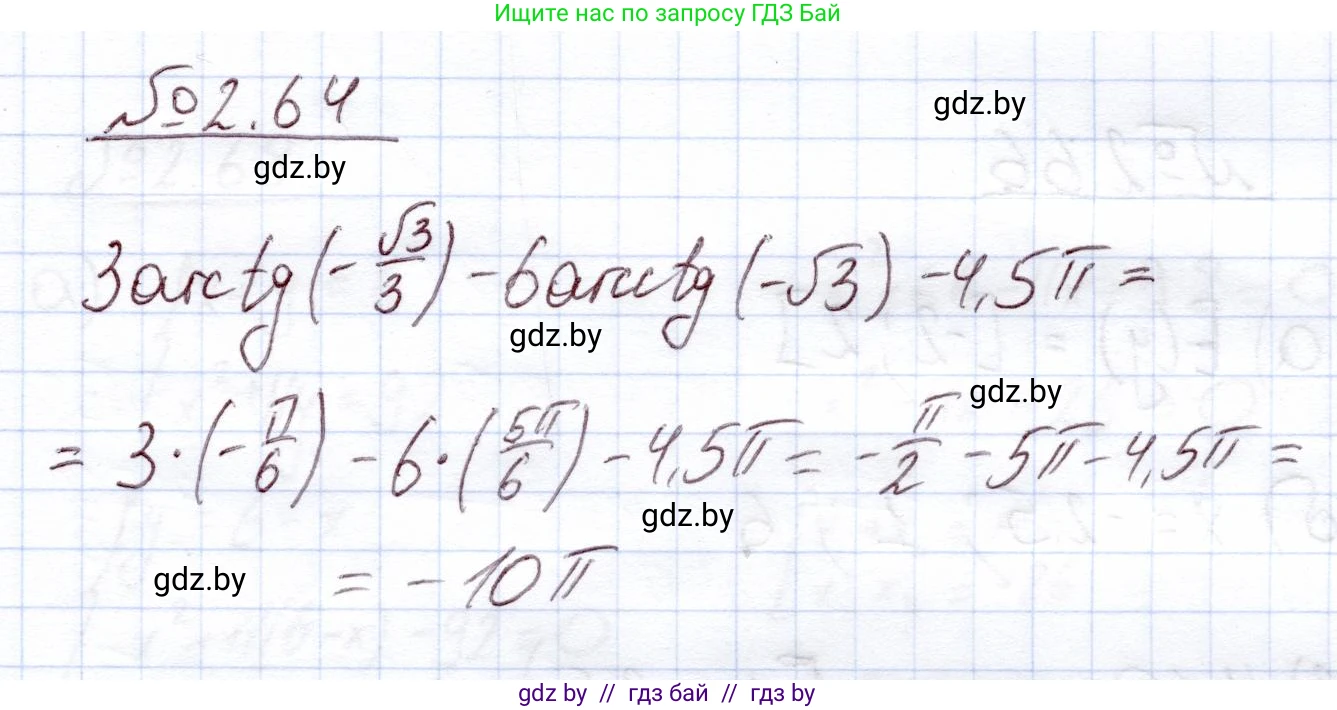 Ищите нас по запросу ГДЗ Бай
№2.64
gdz.by
gdz.by
3arctg(-√3/3) - 6arcctg(-√3) - 4,5π =
gdz.by
gdz.by
= 3·(-π/6) - 6·(5π/6) - 4,5π = -π/2 - 5π - 4,5π =
gdz.by
gdz.by = -10π
gdz by // гдз бай // гдз by